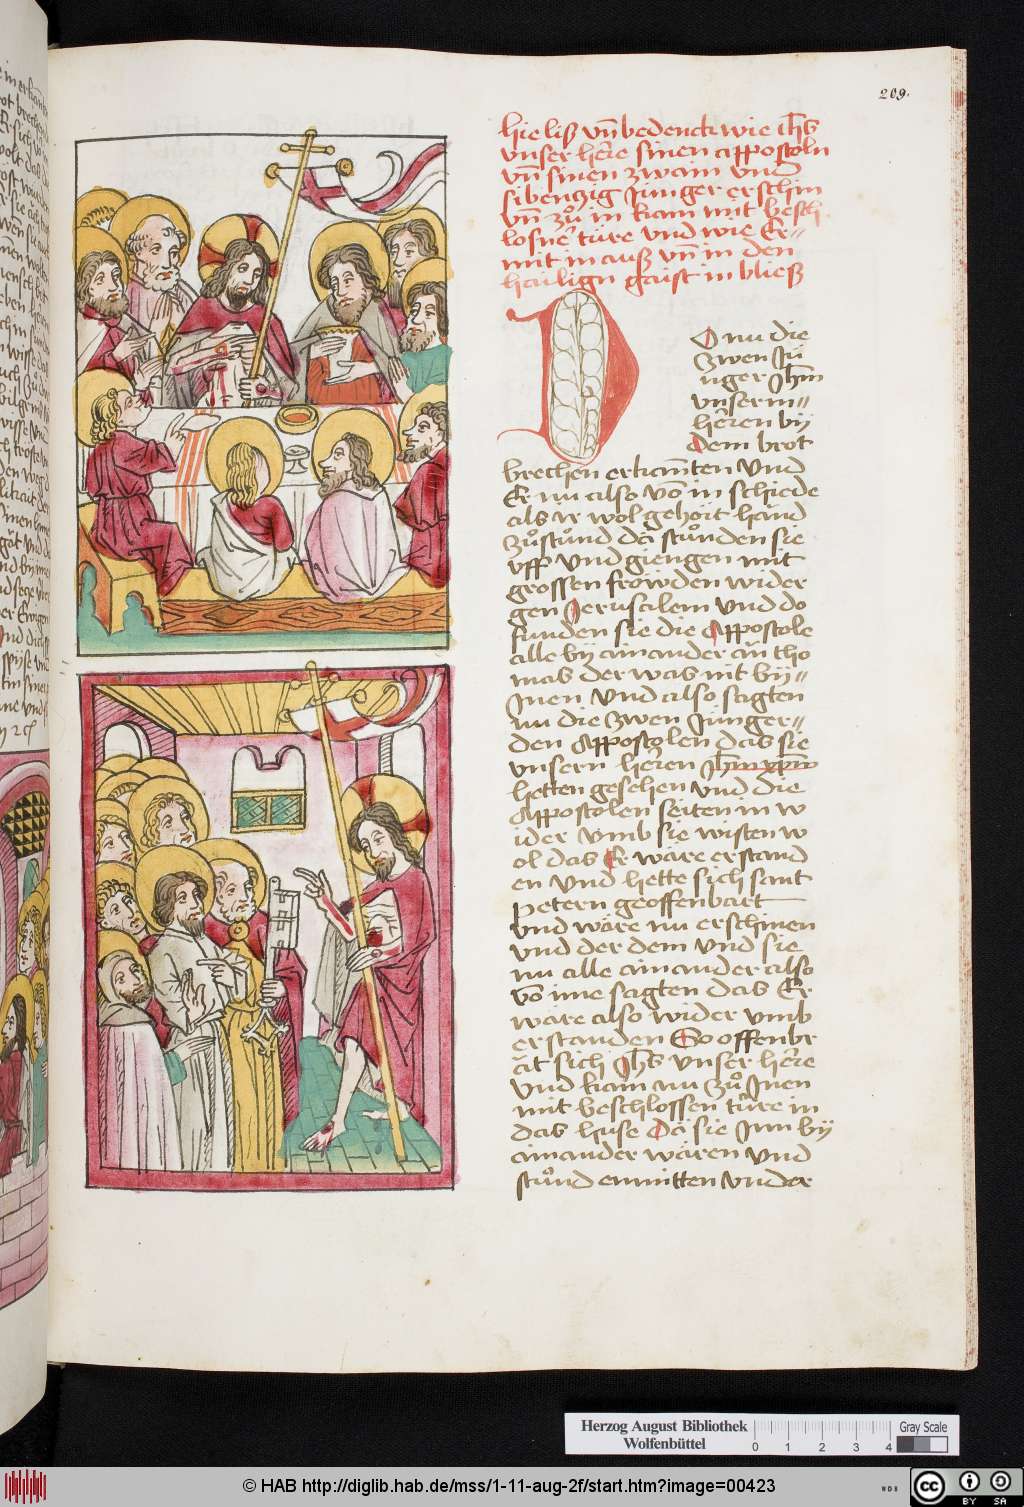 209.
hie liß vn̄ bedenck wie ih̄s
vnser herre sinen apposteln
vn̄ sinen zwain vnd
sibenczig Junger erschin
vn̄ zů in kam mit besch
losner türe vnd wie Er
mit in auß vn̄ in den
hailign gaist in bließ
Do nu die
zwen Ju
nger Jhm̄
vnsern
herren bÿ
dem brot
brechen erkanten Vnd
Er nu also võ in schiede
als ir wol gehört hand
zů stůnd da stůnden sie
vff Vnd giengen mit
grossen fröwden wider
gen Jerusalem Vnd do
funden sie die Appostole
alle bÿ ainander ān tho
mas der was nit bÿ
Jnen Vnd also sagten
nu die zwen Junger
den Appostolen das sie
vnsern herren Jhm̄ xpm̄
hetten gesehen vnd die
Appostolen seiten in w
ider Vmb sie wisten w
ol das Er wäre erstand
en Vnd hette sich sant
petern geoffenbart
vnd wäre nu erschinen
vnd der dem vnd sie
nu alle ainander also
võ ime sagten das Er
wäre also wider vmb
erstanden So offenbr
ät sich Jhs̄ vnser herre
vnd kam nu zů Jnen
mit beschlossen türe in
das huse Da sie Jnn bÿ
ainander wären vnd
stůnd enmitten vnder
Herzog August Bibliothek
Wolfenbüttel
0 1 2 3 4
Gray Scale
© HAB http://diglib.hab.de/mss/1-11-aug-2f/start.htm?image=00423
WDB
cc
BY SA